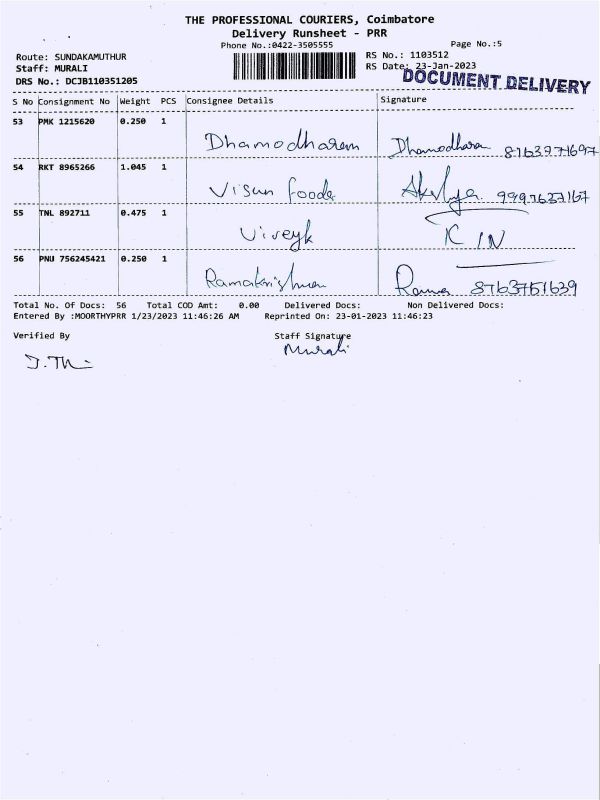 THE PROFESSIONAL COURIERS, Coimbatore
Delivery Runsheet - PRR
Phone No.:0422-3505555
Page No.:5
Route: SUNDAKAMUTHUR
RS No.: 1103512
Staff: MURALI
RS Date: 23-Jan-2023
DRS No.: DCJB110351205
DOCUMENT DELIVERY
S No Consignment No Weight PCS Consignee Details Signature
53 PMK 1215620 0.250 1
Dhamodharan Dhamodharan
54 RKT 8965266 1.045 1
Visun foods Akilya
55 TNL 892711 0.475 1
Viveyk K IN
56 PNU 756245421 0.250 1
Ramakrishnan Rama 8763751639
Total No. Of Docs: 56 Total COD Amt: 0.00 Delivered Docs: Non Delivered Docs:
Entered By :MOORTHYPRR 1/23/2023 11:46:26 AM Reprinted On: 23-01-2023 11:46:23
Verified By Staff Signature
Murali